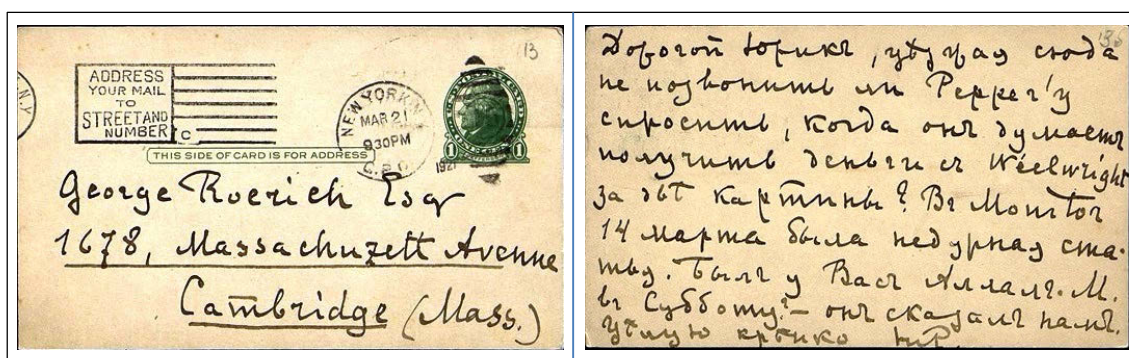 13
N.Y.
ADDRESS
YOUR MAIL
TO
STREET AND
NUMBER
C
NEW YORK, N.Y.
MAR 21
9 30 PM
1921
G.P.O.
1 1
THIS SIDE OF CARD IS FOR ADDRESS
George Roerich Esqr
1678, Massachuzett Avenue
Cambridge (Mass.)
136
Дорогой Юрикъ, уѣзжая сюда
не позвонишь ли Pepper'у
спросить, когда онъ думаетъ
получить деньги съ Weelwright
за двѣ картины? Въ Monitor
14 марта была недурная ста-
тья. Былъ у Васъ М.
въ Субботу? – онъ сказалъ намъ.
Цѣлую крѣпко НР.